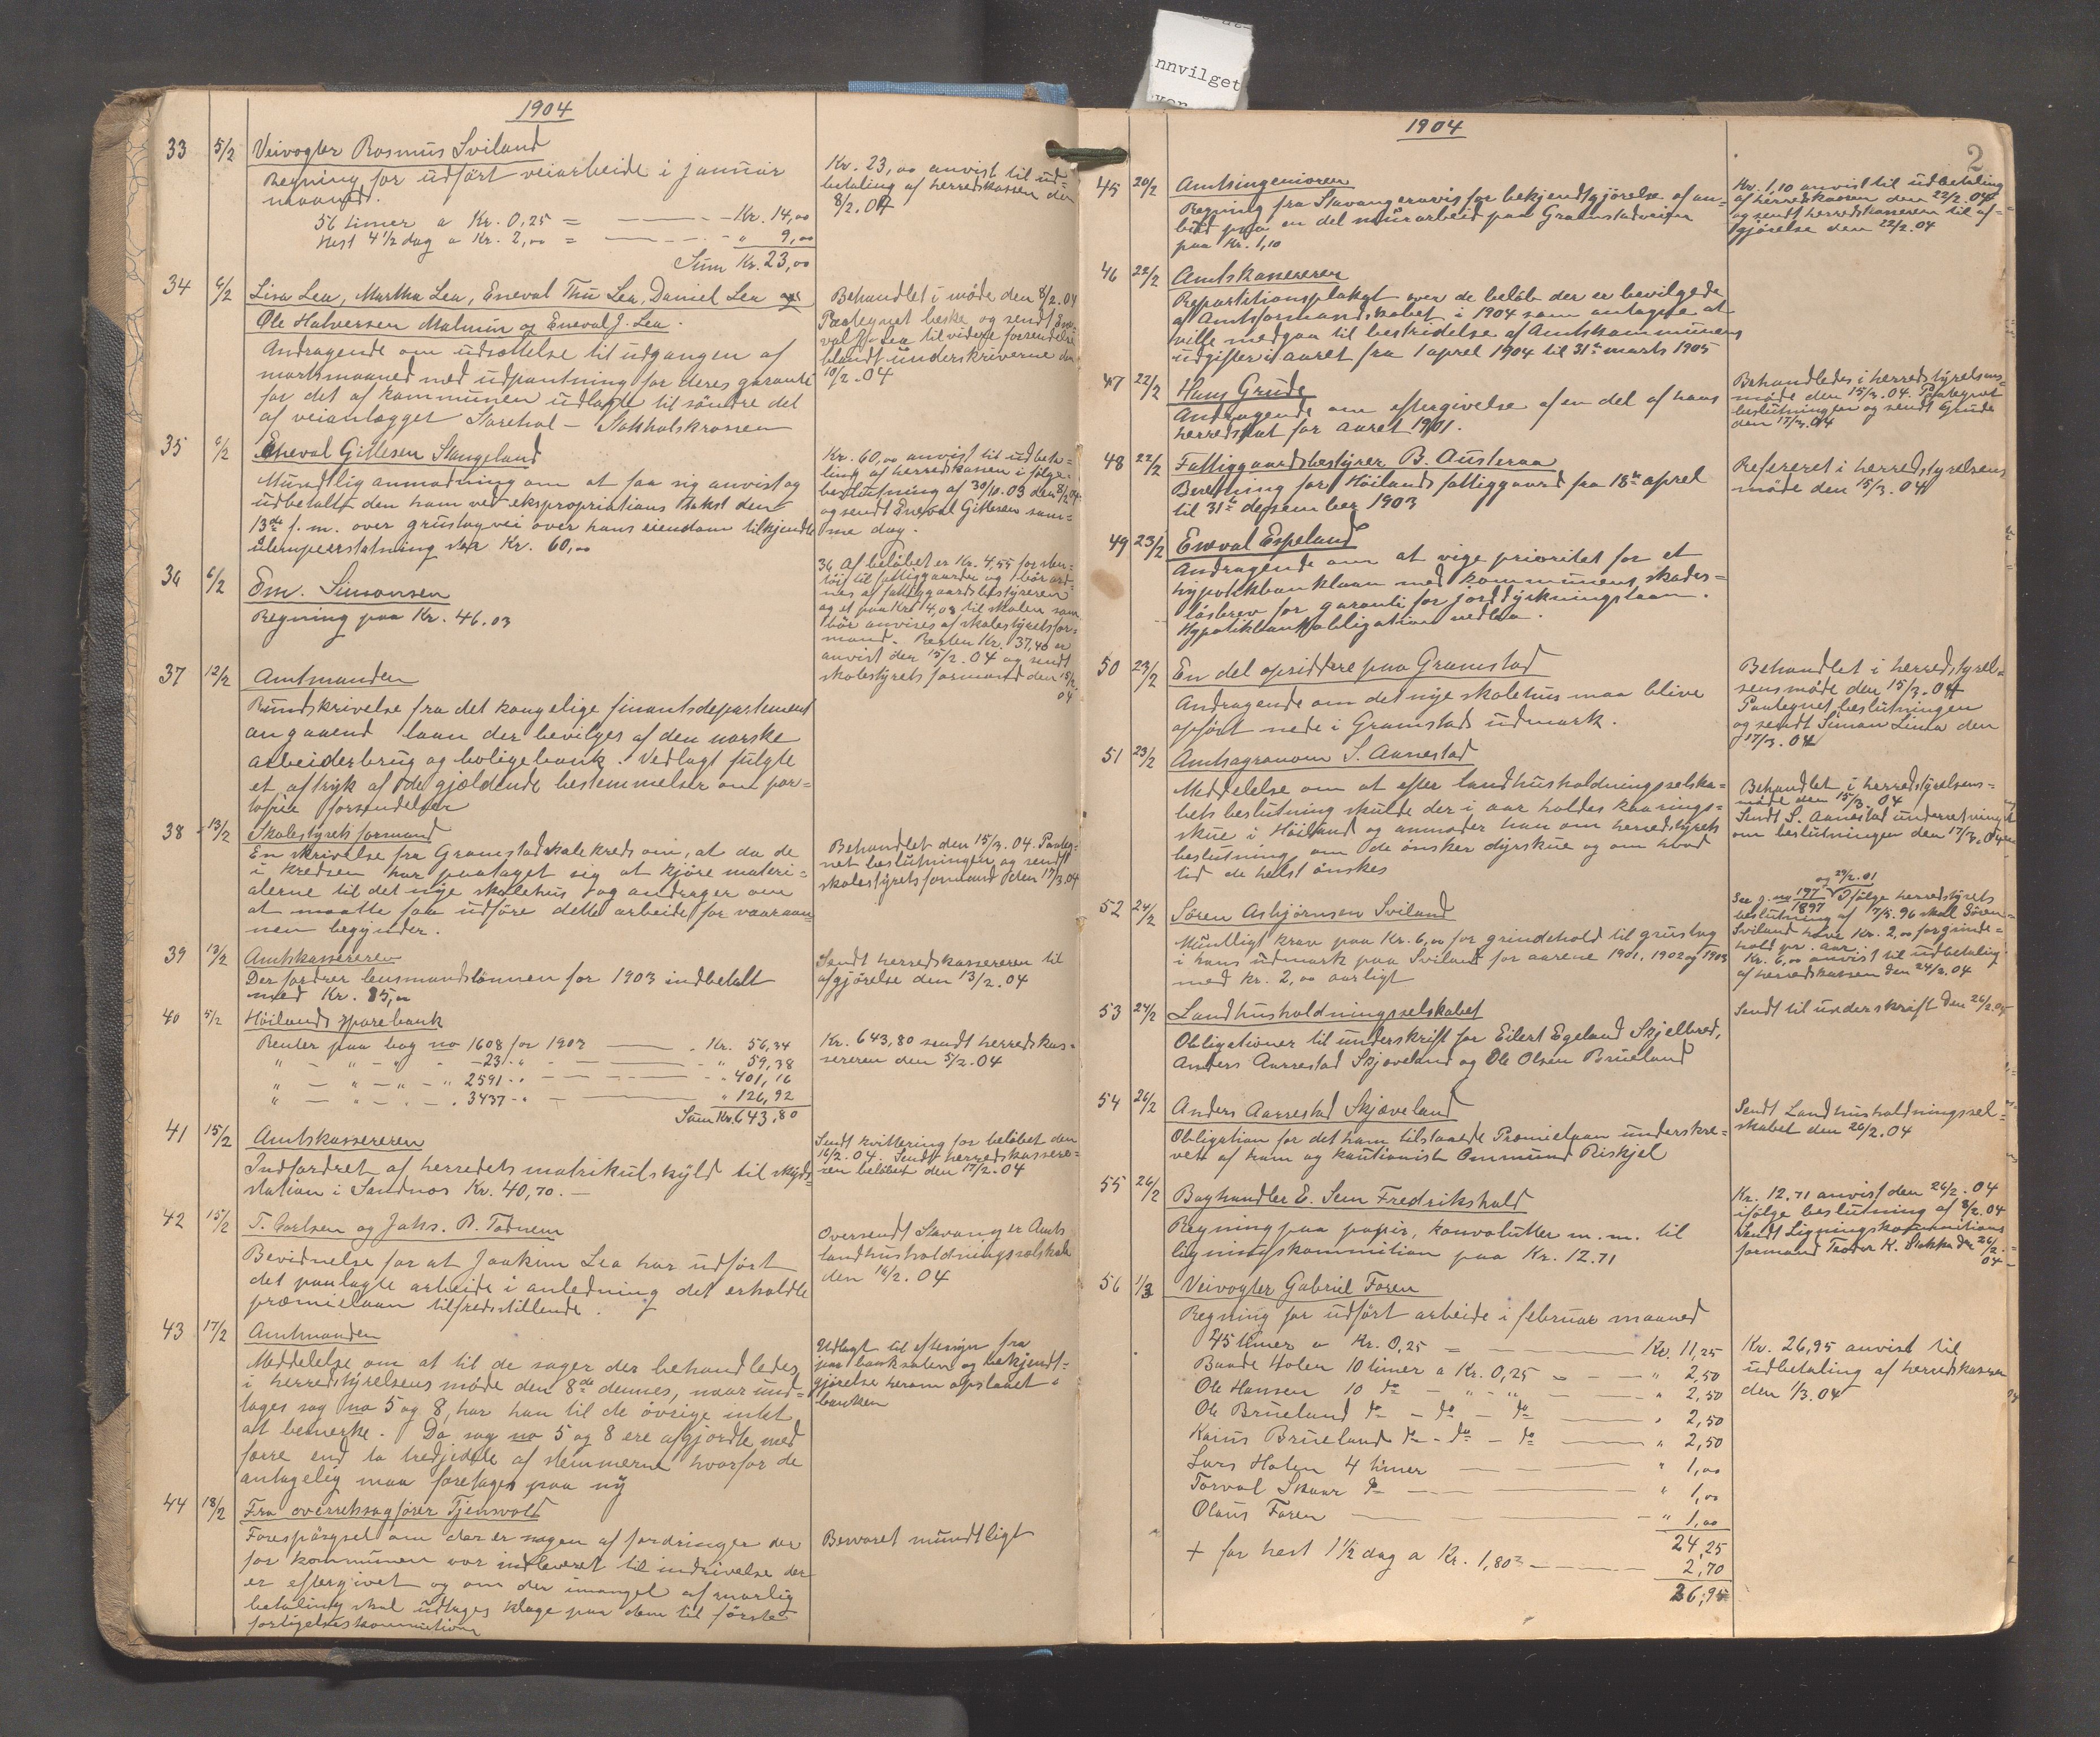 nnvilget
1904
33 5/2 Veivogter Rasmus Sviland
Regning for udført veiarbeide i januar
maaned.
56 timer a Kr. 0,25 = Kr. 14,00
Hest 4 1/2 dag a Kr. 2,00 = " 9,00
Sum Kr. 23,00
Kr. 23,00 anvist til ud=
betaling af herredskassen den
8/2.04
34 6/2 Lisa Lea, Martha Lea, Eneval Thu Lea, Daniel Lea og
Ole Halversen Malmin og Eneval J. Lea.
Andragende om udsættelse til udgangen af
martsmaaned med udpantning for deres garanti
for det af kommunen udlagte til søndre del
af veianlægget
Behandlet i møde den 8/2.04
Paategnet og sendt Ene=
val J. Lea til videre forsendelse
blandt underskriverne den
10/2.04
35 6/2 Eneval Gittesen Stangeland
Mundtlig anmodning om at faa sig anvist og
udbetalt den ham ved ekspropriations takst den
13de f.m. over grustagvei over hans eiendom tilkjendte
ulempeerstatning stor Kr. 60,00
Kr. 60,00 anvist til udbeta=
ling af herredskassen i følge
beslutning af 30/10.03 den 8/2.04
og sendt Eneval Gittesen sam=
me dag.
36 6/2 Em. Simonsen
Regning paa Kr. 46.03
36 Af beløbet er Kr. 4,55 for sten=
tøi til fattiggaarden og bør ord=
nes af fattiggaardsbestyreren
og et paa Kr. 4,08 til skolen som
bør anvises af skolestyrets for=
mand. Resten Kr. 37,40 er
anvist den 15/2.04 og sendt
skolestyrets formand den 15/2
04
37 12/2 Amtmanden
Rundskrivelse fra det kongelige finantsdepartement
angaaend laan der bevilges af den norske
arbeiderbrug og boligebank. Vedlagt fulgte
et aftryk af de gjældende bestemmelser om por=
tofrie forsendelser
38 13/2 Skolestyrets formand
En skrivelse fra Gramstad skolekreds om, at da de
i kredsen har paataget sig at kjøre materi=
alerne til det nye skolehus og andrager om
at maatte faa udføre dette arbeide før vaaraan=
nen begynder.
Behandlet den 15/3.04. Paateg=
net beslutningen og sendt
skolestyrets formand den 17/3.04
39 13/2 Amtskassereren
Der fordrer lensmandslønnen for 1903 indbetalt
med Kr. 85,00
Sendt herredskassereren til
afgjørelse den 13/2.04
40 5/2 Høilands sparebank
Renter paa bog no 1608 for 1903 Kr. 56,34
" - " - " - 23 " 59,38
" - " - " - " 2591 " 401,16
" - " - " 3437 " 126,92
Sum Kr. 643,80
Kr. 643,80 sendt herredskas=
sereren den 5/2.04
41 15/2 Amtskassereren
Indfordret af herredets matrikulskyld til skyds=
station i Sandnæs Kr. 40,70.
Sendt kvittering for beløbet den
16/2.04. Sendt herredskassere=
ren beløbet den 17/2.04
42 15/2 T. Carlsen og Johs. B. Tadnem
Bevidnelse for at Joakim Lea har udført
det paalagte arbeide i anledning det erholdte
præmielaan tilfredsstillende.
Oversendt Stavanger Amts
landhusholdningsselskab
den 16/2.04
43 17/2 Amtmanden
Meddelelse om at til de sager der behandledes
i herredstyrelsens møde den 8de dennes, naar und=
tages sag no 5 og 8, har han til de øvrige intet
at bemerke. Da sag no 5 og 8 ere afgjordte med
færre end to tredjedele af stemmerne hvorfor de
antagelig maa foretages paa ny
Udlagt til eftersyn fra
banksalen og bekjendt=
gjørelse herom opslaaet i
banken
44 18/2 Fra overretssagfører Tjensvold
Forespørgsel om der er nogen af fordringer der
for kommunen var indleveret til indrivelse der
er eftergivet og om der imangel af mindelig
betaling skal udtages klage paa dem til første
forligelseskommission
Besvaret mundtligt
1904
2
45 20/2 Amtsingeniøren
Regning fra Stavangeravis for bekjendtgjørelse af an=
bud paa en del murarbeid paa Gramstadveien
paa Kr. 1,10
Kr. 1,10 anvist til udbetaling
af herredskassen den 22/2.04
og sendt herredskassereren til af=
gjørelse den 22/2.04
46 22/2 Amtskassereren
Repartitionsplakat over de beløb der er bevilgede
af Amtsformandskabet i 1904 som antages at
ville medgaa til bestridelse af Amtskommunens
udgifter i aaret fra 1 aprel 1904 til 31te marts 1905
47 22/2 Hans Grude
Andragende om eftergivelse af en del af hans
herredskat for aaret 1901.
Behandledes i herredstyrelsens=
møde den 15/3.04. Paategnet
beslutningen og sendt Grude
den 17/3.04
48 22/2 Fattiggaardsbestyrer B. Austeraa
Beretning for Høilands fattiggaard fra 18de aprel
til 31te desember 1903
Refereret i herredstyrelsens
møde den 15/3.04
49 23/2 Eneval Espeland
Andragende om at vige prioritet for et
hypotekbanklaan med kommunens skades=
løsbrev for garanti for jorddyrkningslaan.
Hypotekbankobligation vedlaa.
50 23/2 En del opsiddere paa Gramstad
Andragende om det nye skolehus maa blive
opført nede i Gramstad udmark.
Behandlet i herredstyrel=
sensmøde den 15/3.04
Paategnet beslutningen
og sendt Simon Lima den
17/3.04
51 23/2 Amtsagronom S. Aanestad
Meddelelse om at efter landhusholdningsselska=
bets beslutning skulde der i aar holdes kaarings=
skue i Høiland og anmoder han om herredstyrets
beslutning om de ønsker dyrskue og om hvad
tid de helst ønskes
Behandlet i herredstyrelsens=
møde den 15/3.04
Sendt S. Aanestad underretning
om beslutningen den 17/3.04
52 24/2 Søren Asbjørnsen Sviland
Mundtligt krav paa Kr. 6,00 for grindehold til grustag
i hans udmark paa Sviland for aarene 1901, 1902 og 1903
med Kr. 2,00 aarligt
og 29/2.01
See j. no 197/1897 Ifølge herredstyrets
beslutning af 7/5.96 skal Søren
Sviland have Kr. 2,00 for grinde=
hold pr. aar.
Kr. 6,00 anvist til udbetaling
af herredskassen den 24/2.04
53 24/2 Landhusholdningsselskabet
Obligationer til underskrift for Eilert Egeland Skjelbred,
Anders Aarrestad Skjæveland og Ole Olsen Brueland
Sendt til underskrift den 26/2.04
54 26/2 Anders Aarrestad Skjæveland
Obligation for det ham tilstaaede Præmielaan underskre=
vett af ham og kautionist Ommund Riskjel
Sendt Landhusholdningssel=
skabet den 26/2.04
55 26/2 Boghandler E. Sem Fredrikshald
Regning paa papir, konvolutter m.m. til
ligningskommission paa Kr. 12.71
Kr. 12.71 anvist den 26/2.04
ifølge beslutning af 8/2.04
Sendt Ligningskommissions
formand Teodor K. Stokka den 26/2.
04
56 1/3 Veivogter Gabriel Foren
Regning for udført arbeide i februar maaned
45 timer a Kr. 0,25 = Kr. 11,25
Baade Holen 10 timer a Kr. 0,25 " 2,50
Ole Hansen 10 do - " - " " 2,50
Ole Brueland do - do - do " 2,50
Kaius Brueland do - do - do " 2,50
Lars Holen 4 timer " 1,00
Torval Skaar do " 1,00
Olaus Foren " 1,00
24,25
+ for hest 1 1/2 dag a Kr. 1,80 2,70
26,95
Kr. 26,95 anvist til
udbetaling af herredskassen
den 1/3.04